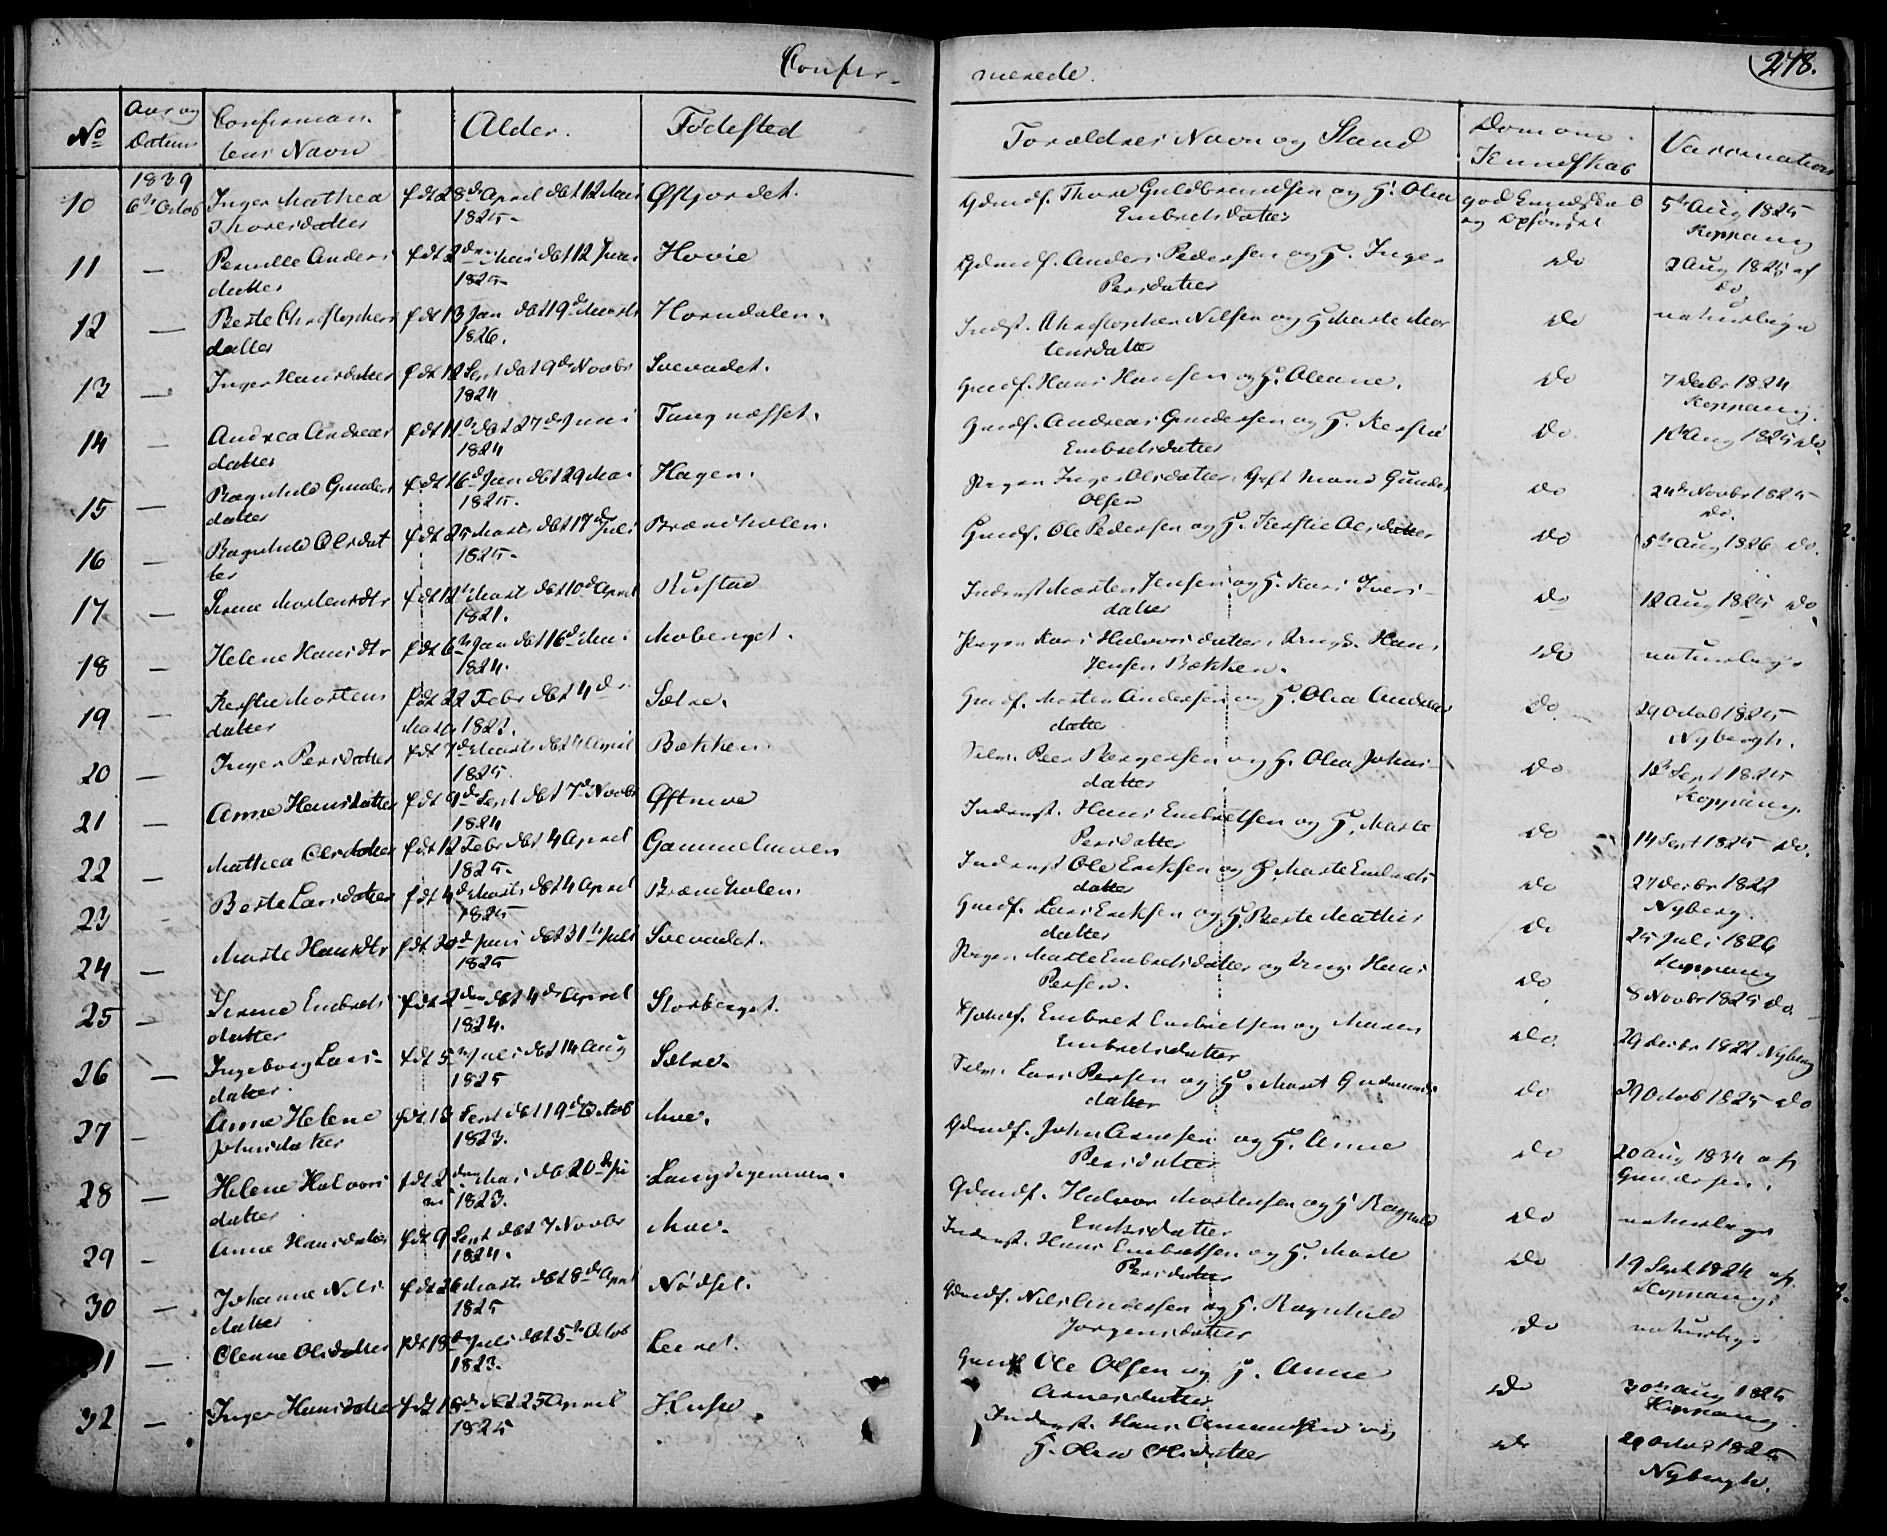 Confir-
merede.
278.
No
Aar og Datum
Confirman-
tens Navn
Alder.
Fødested
Forældres Navn og Stand
Dom om Kundskab
Vaccination
1839
10 6te Octob Inger Mathea Thoresdatter fdt 28de April dbt 12 Mai 1825 Østfjordet. Gdmdf. Thore Guldbrandsen og H. Olea Embretsdatter god Kundskab og Opførsel 5te Aug 1825 Koppang
11 — Pernille Anders datter fdt 2den Mai dbt 12 Juni 1825 Hovie Gdmdf. Anders Pedersen og H. Inger Persdatter Do 2 Aug 1825 af Do
12 — Berte Christophers datter fdt 13 Jan dbt 19de Marts 1826. Horndalen. Indst. Christopher Nilsen og H. Marte Mor tensdatter Do
13 — Inger Hansdatter fdt 12 Sept dbt 9de Novbr 1824 Svevadet. Gmdf. Hans Hansen og H. Oleane. Do 7 Decbr 1824 Koppang.
14 — Andrea Andreas datter fdt 11te dbt 27de Juni 1824 Tangnæsset. Gmdf. Andreas Gundersen og H. Kerstie Embretsdatter Do. 12te Aug 1825 Do.
15 — Ragnhild Gunders datter fdt 16de Jan dbt 29 Mai 1825. Hagen. Pigen Inger Olsdatter, Gift Mand Gunder Olsen Do 24de Novbr 1825 Do.
16 — Ragnhild Olsdat ter fdt 25 Marts dbt 17de Juli 1825. Brændholen. Gmdf. Ole Pedersen og H. Kerstie Olsdatter Do 5te Aug 1826 Do.
17 — Serene Mortensdtr fdt 12te Marts dbt 10de April 1821. Rustad Inderst Morten Jensen og H. Kari Ivers- datter Do 12 Aug 1825 Do
18 — Helene Hansdtr fdt 6te Jan dbt 16de Mai 1824. Moberget. Pigen Kari Halvorsdatter, Ungk. Hans Jensen Bækken. Do
19 — Kerstie Mortens datter fdt 22 Febr dbt 4de Marts 1823. Sætre. Gmdf. Morten Andersen og H. Olea Anders datter Do. 29 Octob 1825 Nybergh.
20 — Inger Persdatter fdt 7de Marts dbt 4 April 1825. Bækken Selve. Peer Bergersen og H. Olea Johns- datter Do 12te Sept 1825 Koppang.
21 — Anne Hansdatter fdt 9de Sept dbt 7de Novbr 1824 Østmoe Inderst. Hans Embretsen og H. Marte Persdatter Do 14 Sept 1825 Do.
22 — Mathea Olsdatter fdt 12 Febr dbt 4 April 1825. Gammelmoen Inderst Ole Eriksen og H. Marte Embrets datter Do 27 Decbr 1822 Nyberg.
23 — Berte Larsdatter fdt 4de Marts dbt 4 April 1825 Brændholen. Gmdf. Lars Eriksen og H. Berte Mathis datter Do 25 Juli 1826 Koppang
24 — Marte Hansdtr fdt 20de Juni dbt 31te Juli 1825 Svevadet. Pigen Marte Embretsdatter og Ungk. Hans Persen. Do 8 Novbr 1825 Do
25 — Serene Embrets datter fdt 2den dbt 4de April 1824. Storberget. Gdmdf. Embret Embretsen og Maren Embretsdatter Do. 29 Decbr 1822 Nyberg
26 — Ingeborg Lars- datter. fdt 5te Juli dbt 14 Aug 1825 Sætre. Selve. Lars Persen og H. Marit Gudmunds datter Do 29 Octob 1825 Do
27 — Anne Helene Johnsdatter fdt 13 Sept dbt 19de Octob 1823. Moe. Gdmdf. John Arnesen og H. Anne Persdatter Do 20 Aug 1834 af Gundersen.
28 — Helene Halvors datter fdt 2den Mai dbt 20de Ju ni 1823. Langdegemoen. Gdmdf. Halvor Mortensen og H. Ragnild Eriksdatter Do
29 — Anne Hansdatter fdt 9 Sept dbt 7 Novbr 1824. Moe. Inderst. Hans Embretsen og H. Marte Persdatter Do 19 Sept 1824 af Koppang.
30 — Johanne Nils datter fdt 26 Marts dbt 8de April 1825 Nødset. Gdmdf. Nils Andersen og H. Ragnhild Jørgensdatter Do
31 — Olenne Olsdatter fdt 18de Juli dbt 5te Octob 1823. Leeret. Gmdf Ole Olsen og H. Anne Arnesdatter Do 30te Aug 1825 Koppang
32 — Inger Hansdatter fdt 18de dbt 25 April 1825 Husø. Inderst. Hans Amundsen og H. Olea Olsdatter Do 29 Octob 1825 Nybergh.